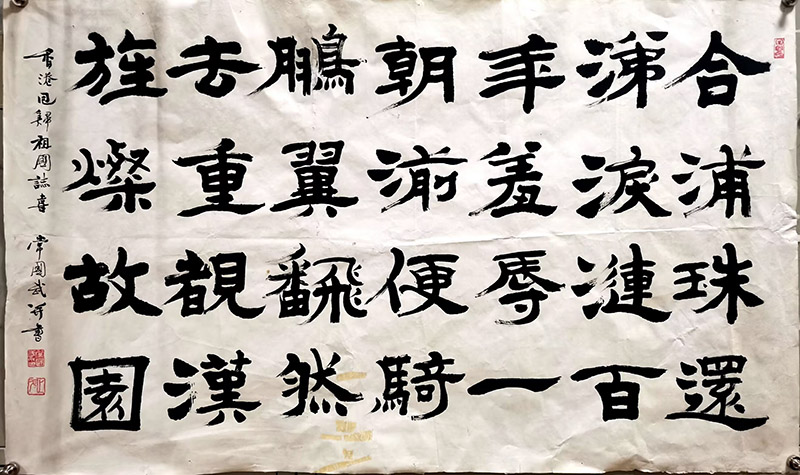 合浦珠還
涕淚漣百
年羞辱一
朝湔便騎
鵬翼飜然
去重覩漢
旌燦故園
香港囘歸祖國誌喜 常國武并書